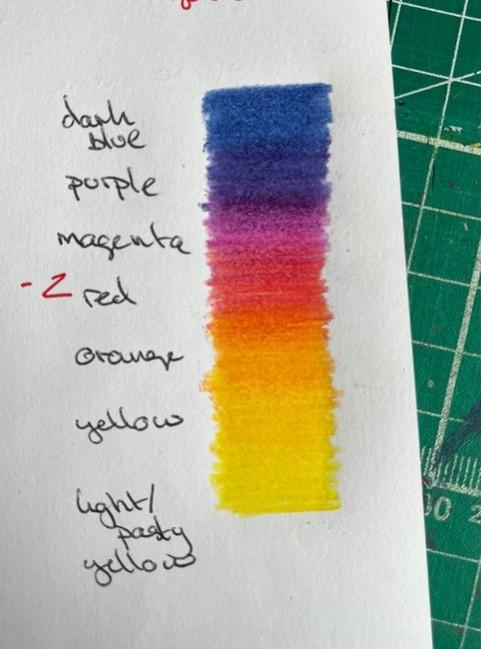 dark
blue
purple
magenta
- 2 red
orange
yellow
light/
pasty
yellow